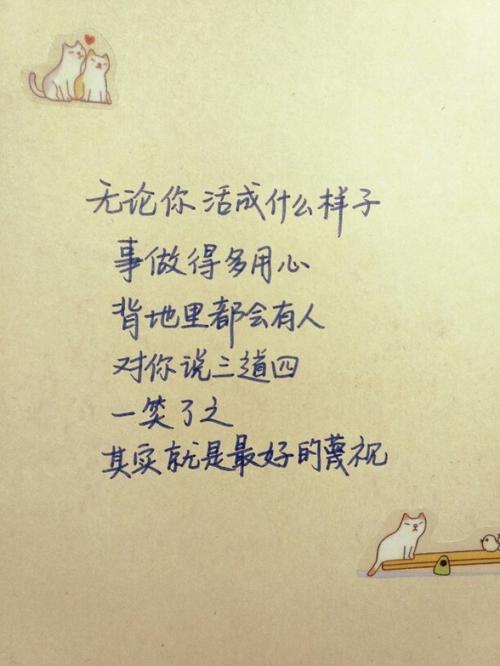 无论你活成什么样子
事做得多用心
背地里都会有人
对你说三道四
一笑了之
其实就是最好的蔑视